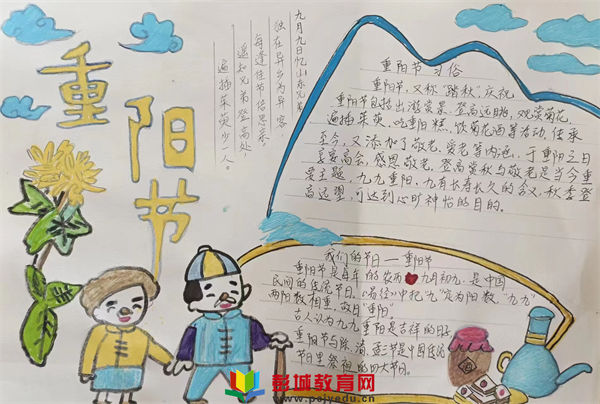 重阳节
九月九日忆山东兄弟
独在异乡为异客
每逢佳节倍思亲
遥知兄弟登高处
遍插茱萸少一人。
重阳节 习俗
重阳节,又称"踏秋",庆祝
重阳节包括出游赏景、登高远眺、观赏菊花、
遍插茱萸、吃重阳糕、饮菊花酒等活动,传承
至今,又添加了敬老、爱老等内涵,于重阳之日
享宴高会,感恩敬老,登高赏秋与敬老是当今重
要主题。九九重阳,九有长寿长久的含义,秋季登
高远望,可达到心旷神怡的目的。
我们的节日——重阳节
重阳节是每年的农历九月初九,是中国
民间的传统节日。《易经》中把"九"定为阳数,"九九"
两阳数相重,故曰"重阳",
古人认为九九重阳是吉祥的日子
重阳节与除、清、盂三节是中国传统
节日里祭祖的四大节日。
酒
彭城教育网
www.pcjyedu.cn